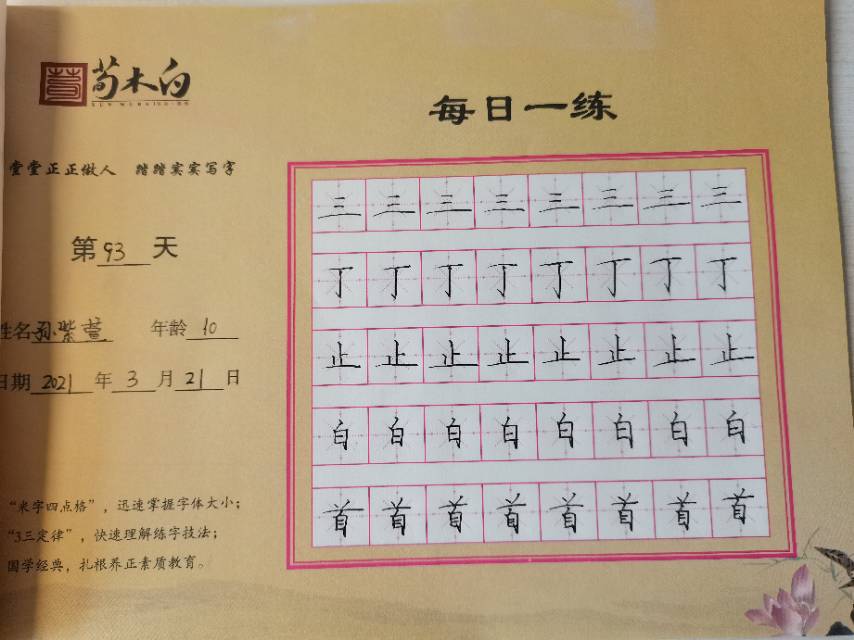 荀木白
每日一练
堂堂正正做人 踏踏实实写字
第 93 天
姓名 孙紫萱 年龄 10
日期 2021 年 3 月 21 日
"米字四点格"，迅速掌握字体大小；
"3三定律"，快速理解练字技法；
国学经典，扎根养正素质教育。
三 三 三 三 三 三 三 三
丁 丁 丁 丁 丁 丁 丁 丁
止 止 止 止 止 止 止 止
白 白 白 白 白 白 白 白
首 首 首 首 首 首 首 首